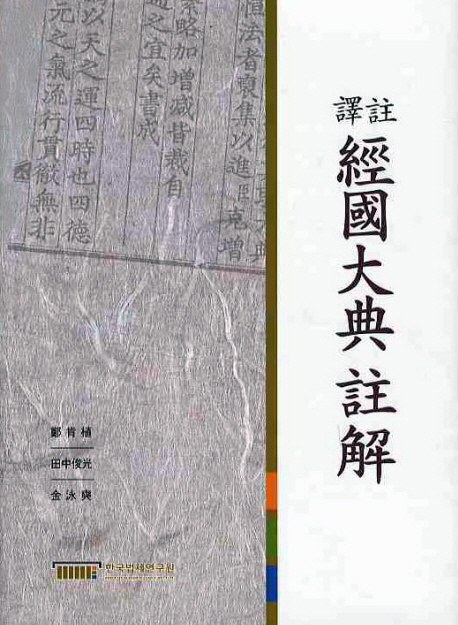 譯註
經國大典 註解
法者裒集以進臣克增
略加增減皆裁自
之宜矣書成
以天之運四時也四德
元之氣流行貫徹無非
鄭肯植
田中俊光
金泳奭
한국법제연구원